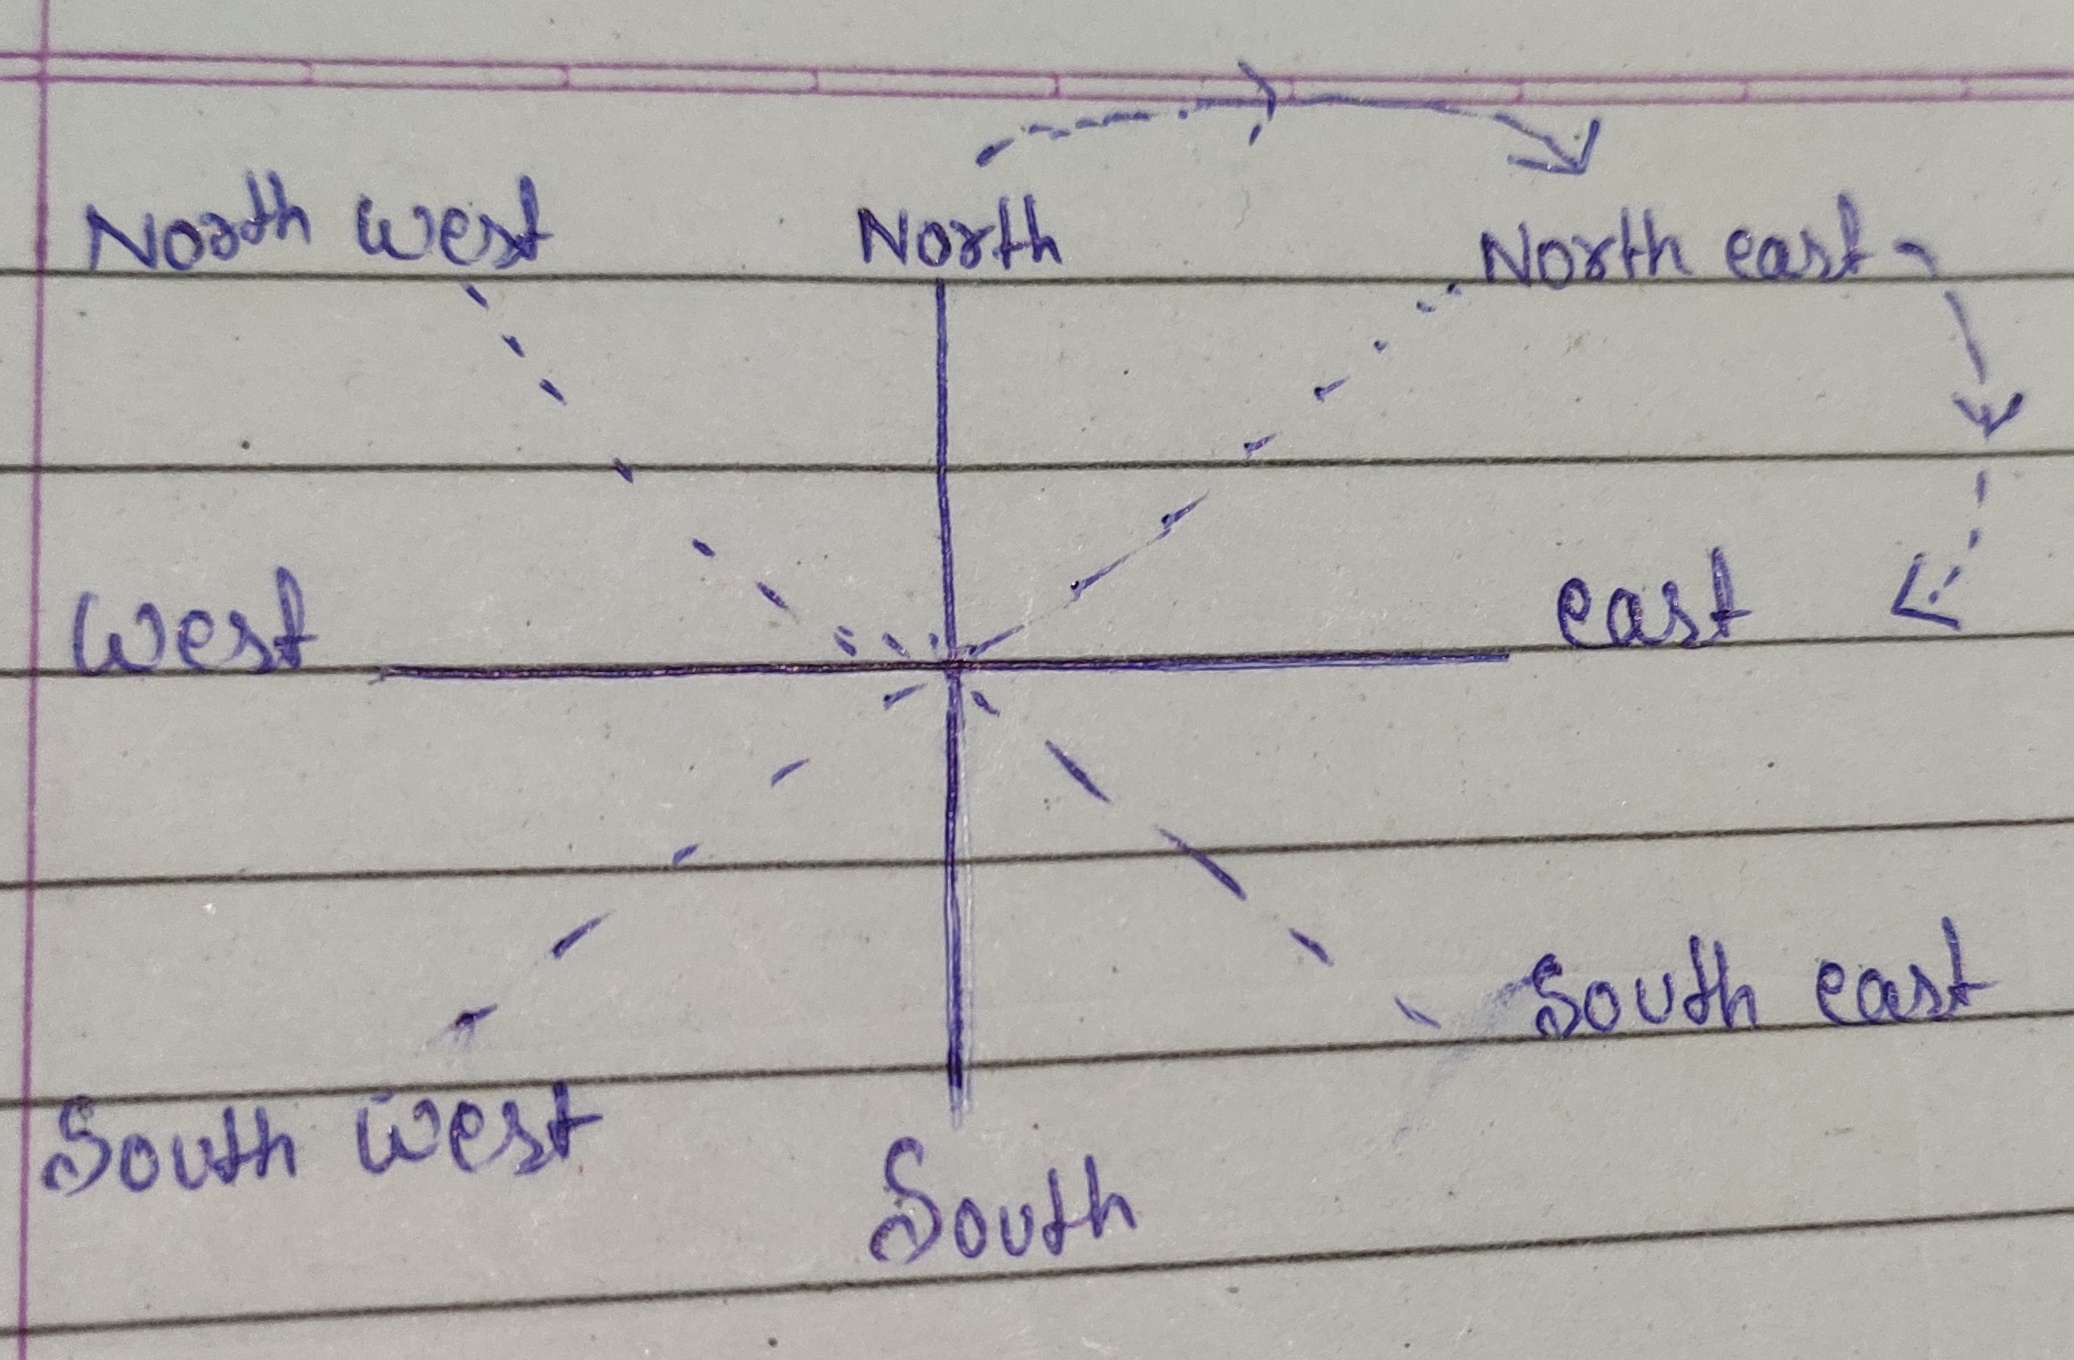 North west North North east
west east
South east
South west
South